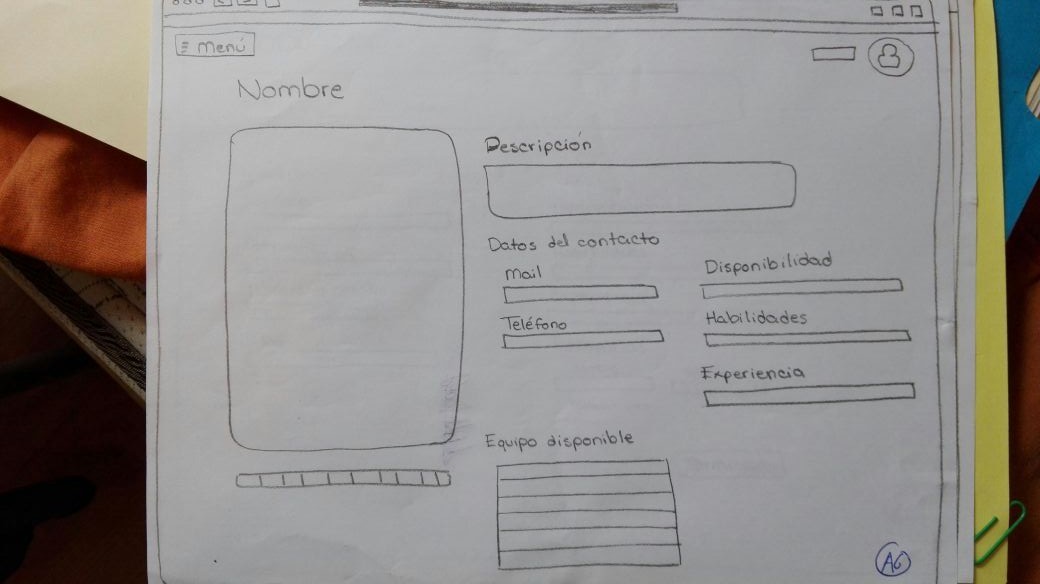 Menú
Nombre
Descripción
Datos del contacto
Mail
Disponibilidad
Teléfono
Habilidades
Experiencia
Equipo disponible
A6